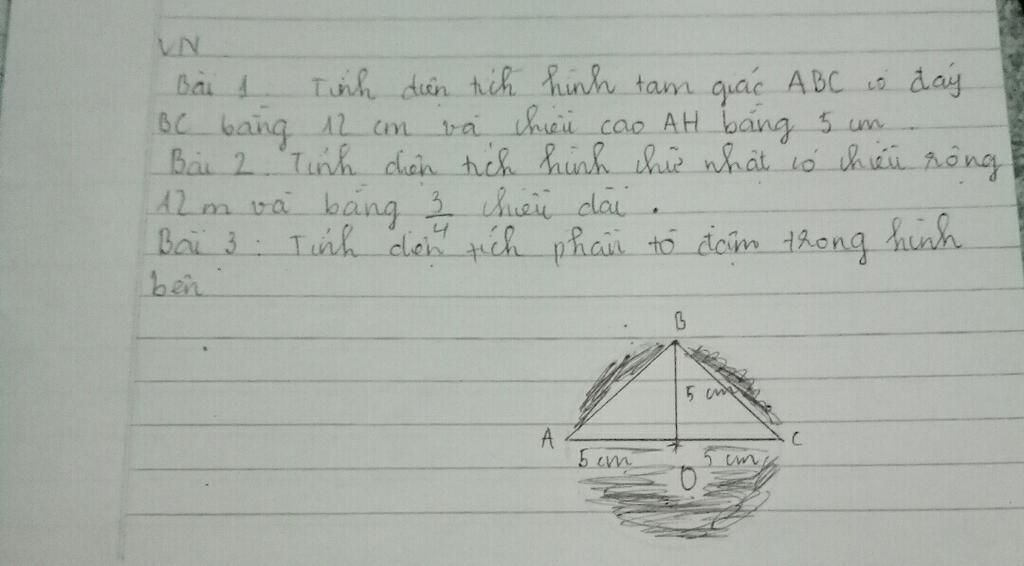 VN
Bài 1. Tính diện tích hình tam giác ABC có đáy
BC bằng 12 cm và chiều cao AH bằng 5 cm.
Bài 2. Tính diện tích hình chữ nhật có chiều rộng
12 m và bằng 3/4 chiều dài.
Bài 3: Tính diện tích phần tô đậm trong hình
bên
B
5 cm
A
C
5 cm
5 cm
O